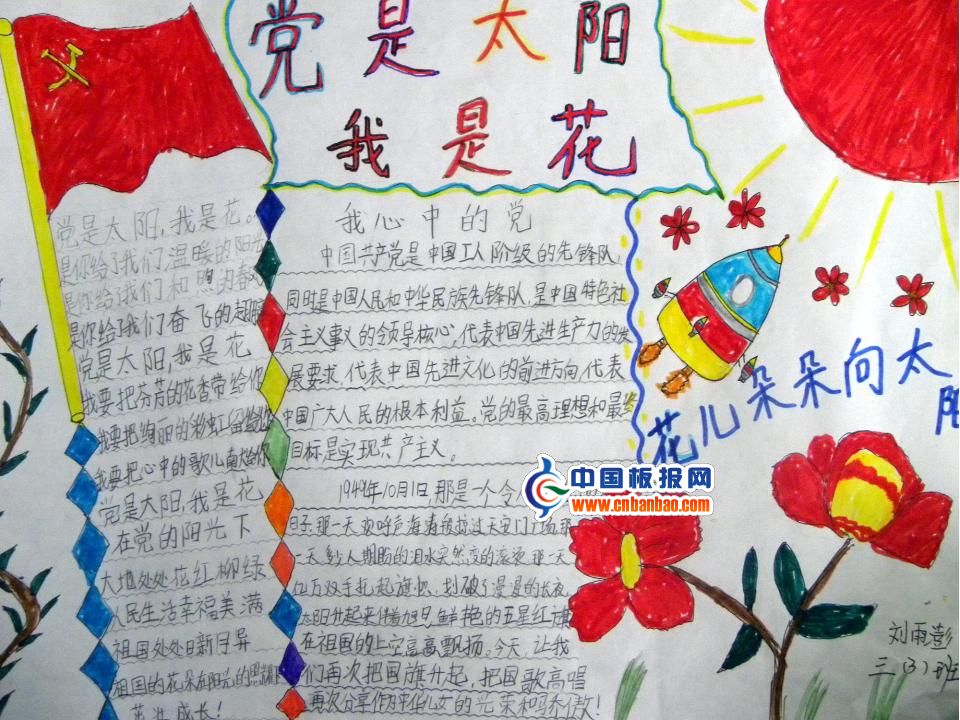 党是太阳
我是花
党是太阳，我是花。
是你给了我们温暖的阳光
是你给了我们和煦的春
是你给了我们奋飞的翅膀
党是太阳，我是花
我要把芬芳的花香带给你
我要把绚丽的彩虹留给你
我要把心中的歌儿献给你
党是太阳，我是花
在党的阳光下
大地处处花红柳绿
人民生活幸福美满
祖国处处日新月异
祖国的花朵在阳光的照耀下
茁壮成长！
我心中的党
中国共产党是中国工人阶级的先锋队，
同时是中国人民和中华民族先锋队，是中国特色社
会主义事义的领导核心，代表中国先进生产力的发
展要求，代表中国先进文化的前进方向，代表
中国广大人民的根本利益。党的最高理想和最终
目标是实现共产主义。
1949年10月1日，那是一个令人
日子，那一天，欢呼声海涛般掠过天安门广场，那
一天，多少人期盼的泪水突然变的滚烫，那一天
亿万双手托起旗帜，划破了漫漫的长夜
太阳升起来，伴着旭日，鲜艳的五星红旗
在祖国的上空高高飘扬。今天，让我
们再次把国旗升起，把国歌高唱
再次分享作为中华儿女的光荣和骄傲！
花儿朵朵向太
阳
中国板报网
www.cnbanbao.com
刘雨澎
三（3）班